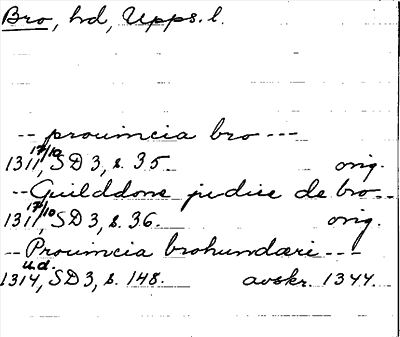 Bro, hd, Upps. l.
-- prouincia bro ---
1311 17/10, SD 3, s. 35. orig.
-- Guilddone judice de bro --
1311 17/10, SD 3, s. 36. orig.
-- Prouincia brohundæri ---
1314 u.d., SD 3, s. 148. avskr. 1344.